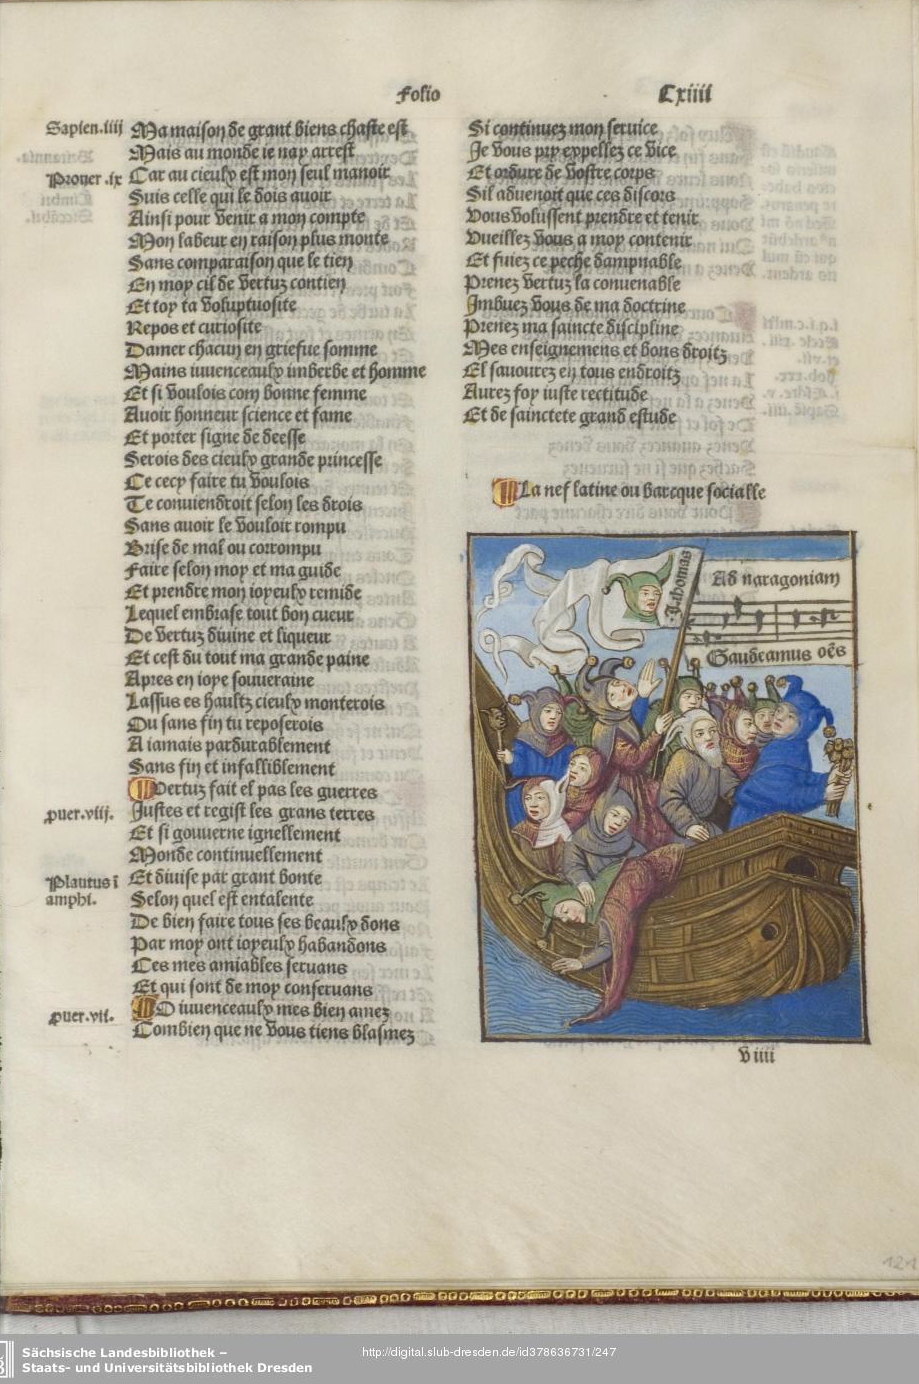 Folio Cxiiii
Sapien.iiij
Ma maison de grant biens chaste est
Mais au monde ie nay arrest
Prouer.ix
Car au cieulx est mon seul manoir
Suis celle qui le dois auoir
Ainsi pour venir a mon compte
Mon labeur en raison plus monte
Sans comparaison que le tien
En moy cil de vertuz contien
Et toy ta voluptuosite
Repos et curiosite
Damer chacun en griefue somme
Mains iuuenceaulx imberbe et homme
Et si voulois com bonne femme
Auoir honneur science et fame
Et porter signe de deesse
Serois des cieulx grande princesse
Ce cecy faire tu voulois
Te conuiendroit selon les drois
Sans auoir le vouloir rompu
Brise de mal ou corrompu
Faire selon moy et ma guide
Et prendre mon ioyeulx remide
Lequel embrase tout bon cueur
De vertuz diuine et liqueur
Et cest du tout ma grande paine
Apres en ioye souueraine
Lassus es haultz cieulx monterois
Ou sans fin tu reposerois
A iamais pardurablement
Sans fin et infalliblement
Vertuz fait el pas les guerres
puer.viij.
Justes et regist les grans terres
Et si gouuerne ignellement
Monde continuellement
Plautus ī
amphi.
Et diuise par grant bonte
Selon quel est entalente
De bien faire tous ses beaulx dons
Par moy ont ioyeulx habandons
Ces mes amiables seruans
Et qui sont de moy conseruans
puer.vii.
O iuuenceaulx mes bien amez
Combien que ne vous tiens blasmez
Si continuez mon seruice
Je vous pry expellez ce vice
Et ordure de vostre corps
Sil aduenoit que ces discors
Vous volussent prendre et tenir
Vueillez vous a moy contenir
Et fuiez ce peche dampnable
Prenez vertuz la conuenable
Imbuez vous de ma doctrine
Prenez ma saincte discipline
Mes enseignemens et bons droitz
El sauourez en tous endroitz
Aurez foy iuste rectitude
Et de sainctete grand estude
La nef latine ou barcque socialle
Ad naragoniam
Gaudeamus oēs
v iiii
121
Sächsische Landesbibliothek –
Staats- und Universitätsbibliothek Dresden
http://digital.slub-dresden.de/id378636731/247